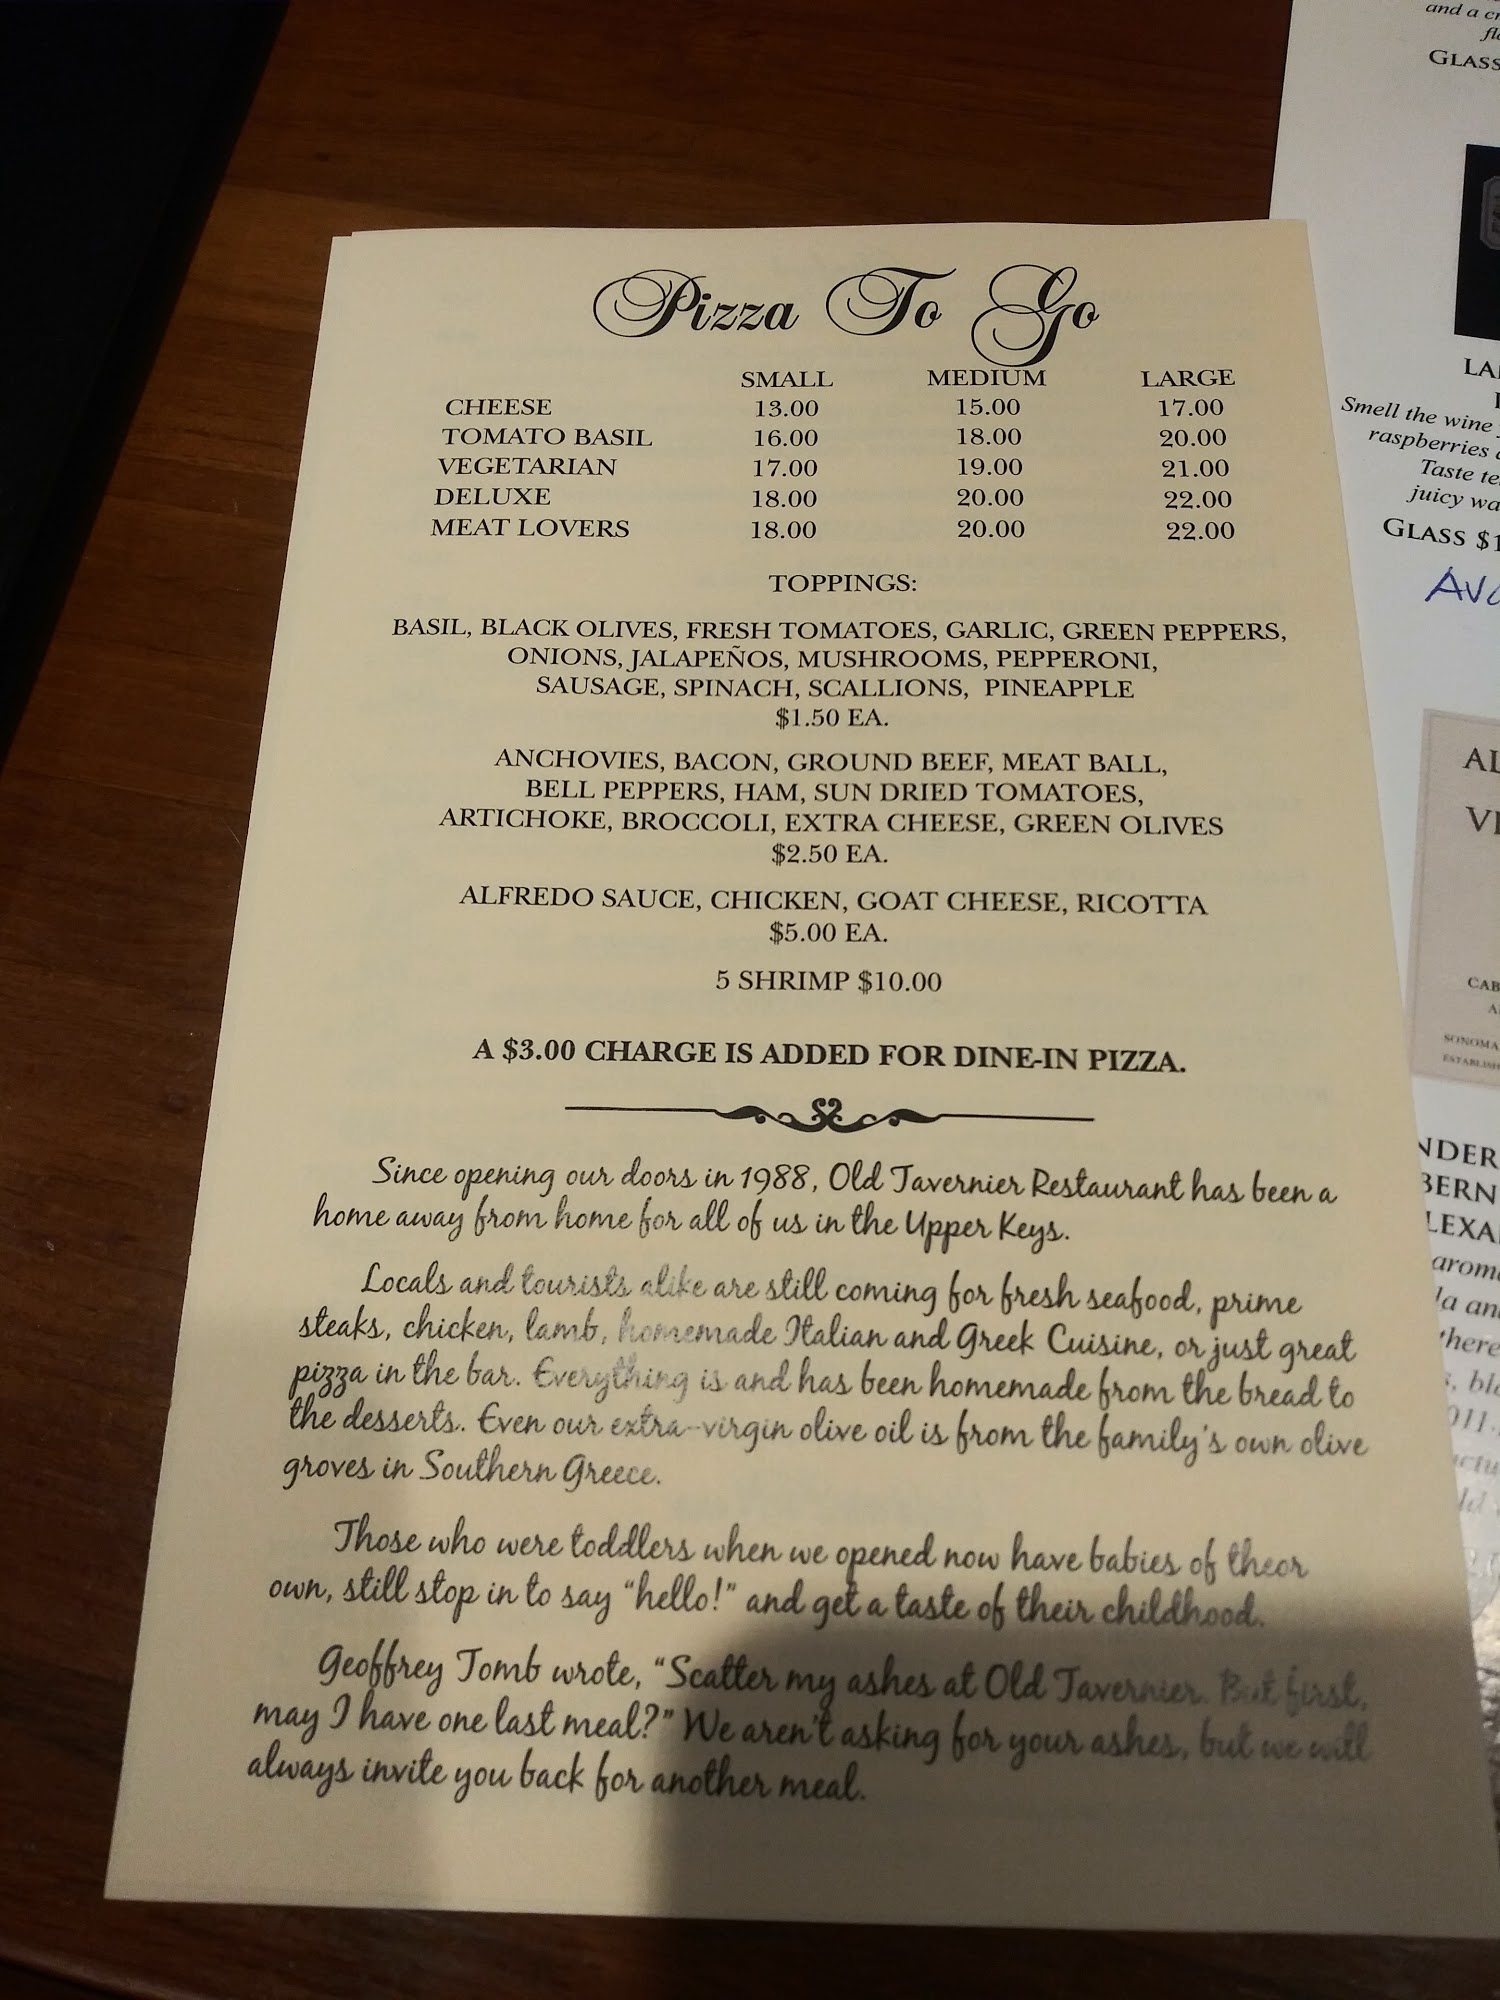 Pizza To Go
SMALL MEDIUM LARGE
CHEESE 13.00 15.00 17.00
TOMATO BASIL 16.00 18.00 20.00
VEGETARIAN 17.00 19.00 21.00
DELUXE 18.00 20.00 22.00
MEAT LOVERS 18.00 20.00 22.00
TOPPINGS:
BASIL, BLACK OLIVES, FRESH TOMATOES, GARLIC, GREEN PEPPERS,
ONIONS, JALAPEÑOS, MUSHROOMS, PEPPERONI,
SAUSAGE, SPINACH, SCALLIONS, PINEAPPLE
$1.50 EA.
ANCHOVIES, BACON, GROUND BEEF, MEAT BALL,
BELL PEPPERS, HAM, SUN DRIED TOMATOES,
ARTICHOKE, BROCCOLI, EXTRA CHEESE, GREEN OLIVES
$2.50 EA.
ALFREDO SAUCE, CHICKEN, GOAT CHEESE, RICOTTA
$5.00 EA.
5 SHRIMP $10.00
A $3.00 CHARGE IS ADDED FOR DINE-IN PIZZA.
Since opening our doors in 1988, Old Tavernier Restaurant has been a
home away from home for all of us in the Upper Keys.
Locals and tourists alike are still coming for fresh seafood, prime
steaks, chicken, lamb, homemade Italian and Greek Cuisine, or just great
pizza in the bar. Everything is and has been homemade from the bread to
the desserts. Even our extra-virgin olive oil is from the family's own olive
groves in Southern Greece.
Those who were toddlers when we opened now have babies of theor
own, still stop in to say "hello!" and get a taste of their childhood.
Geoffrey Tomb wrote, "Scatter my ashes at Old Tavernier. But first,
may I have one last meal?" We aren't asking for your ashes, but we will
always invite you back for another meal.
and a
GLASS
Smell the wine
raspberries
Taste
juicy
GLASS $1
CAB
SONOMA